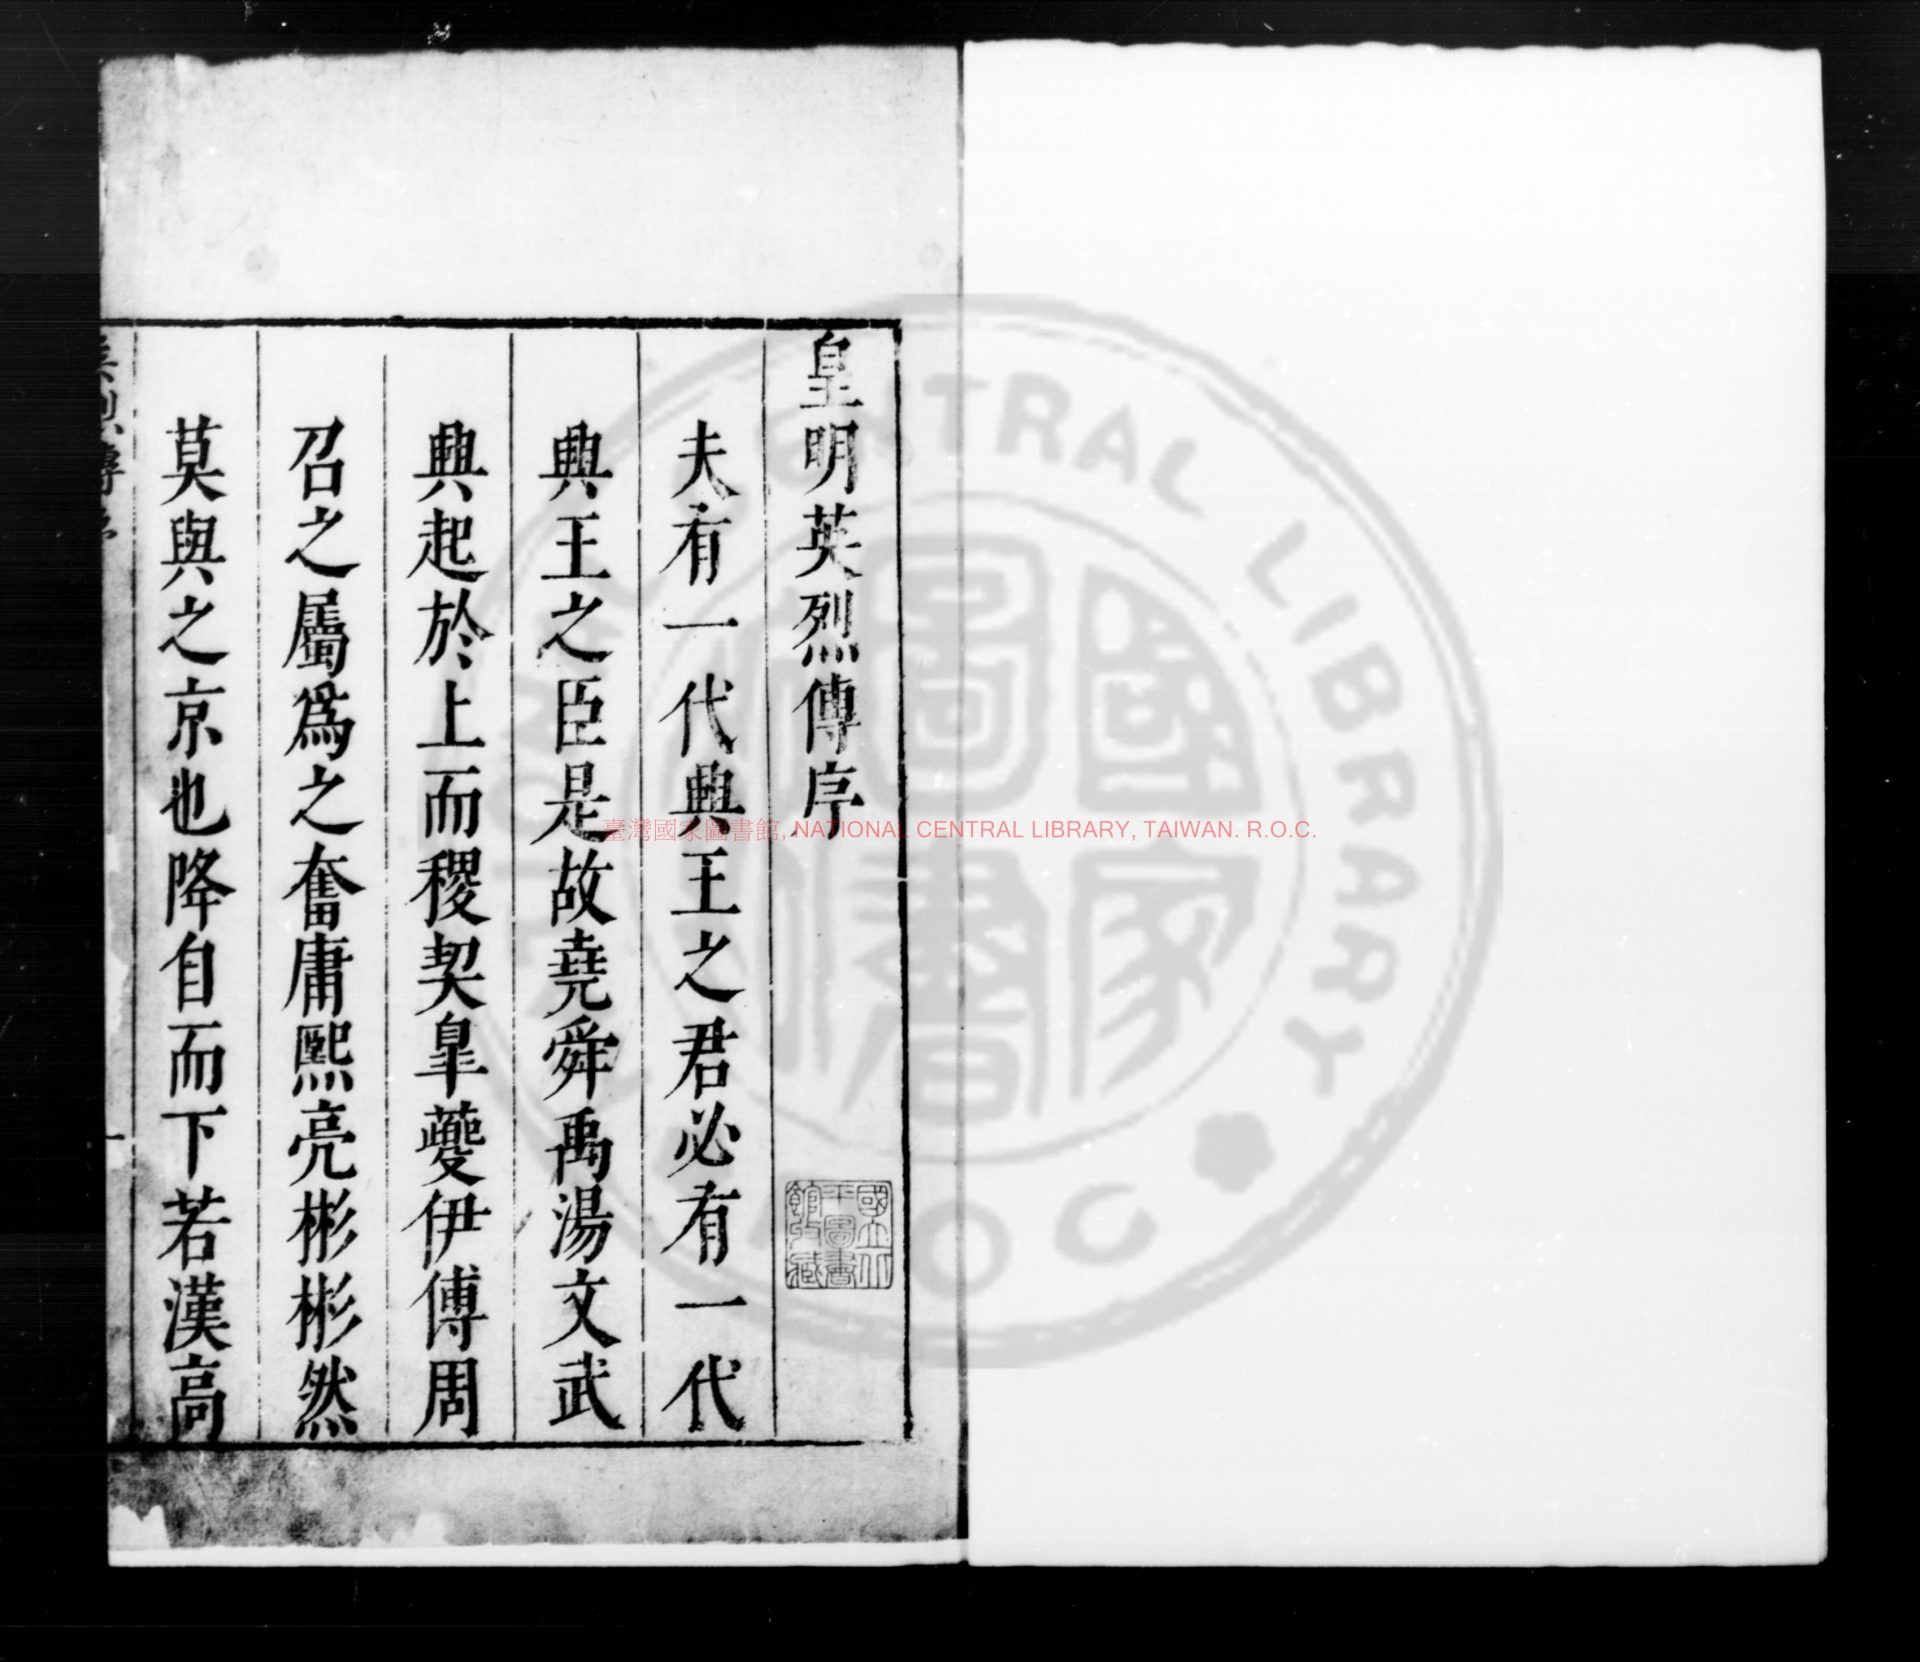 皇明英烈傳序
夫有一代興王之君必有一代
興王之臣是故堯舜禹湯文武
興起於上而稷契皐夔伊傅周
召之屬爲之奮庸熙亮彬彬然
莫與之京也降自而下若漢高
英烈傳序
一
國立北
平圖書
館收藏
臺灣國家圖書館, NATIONAL CENTRAL LIBRARY, TAIWAN. R.O.C.
國家
圖書
CENTRAL LIBRARY